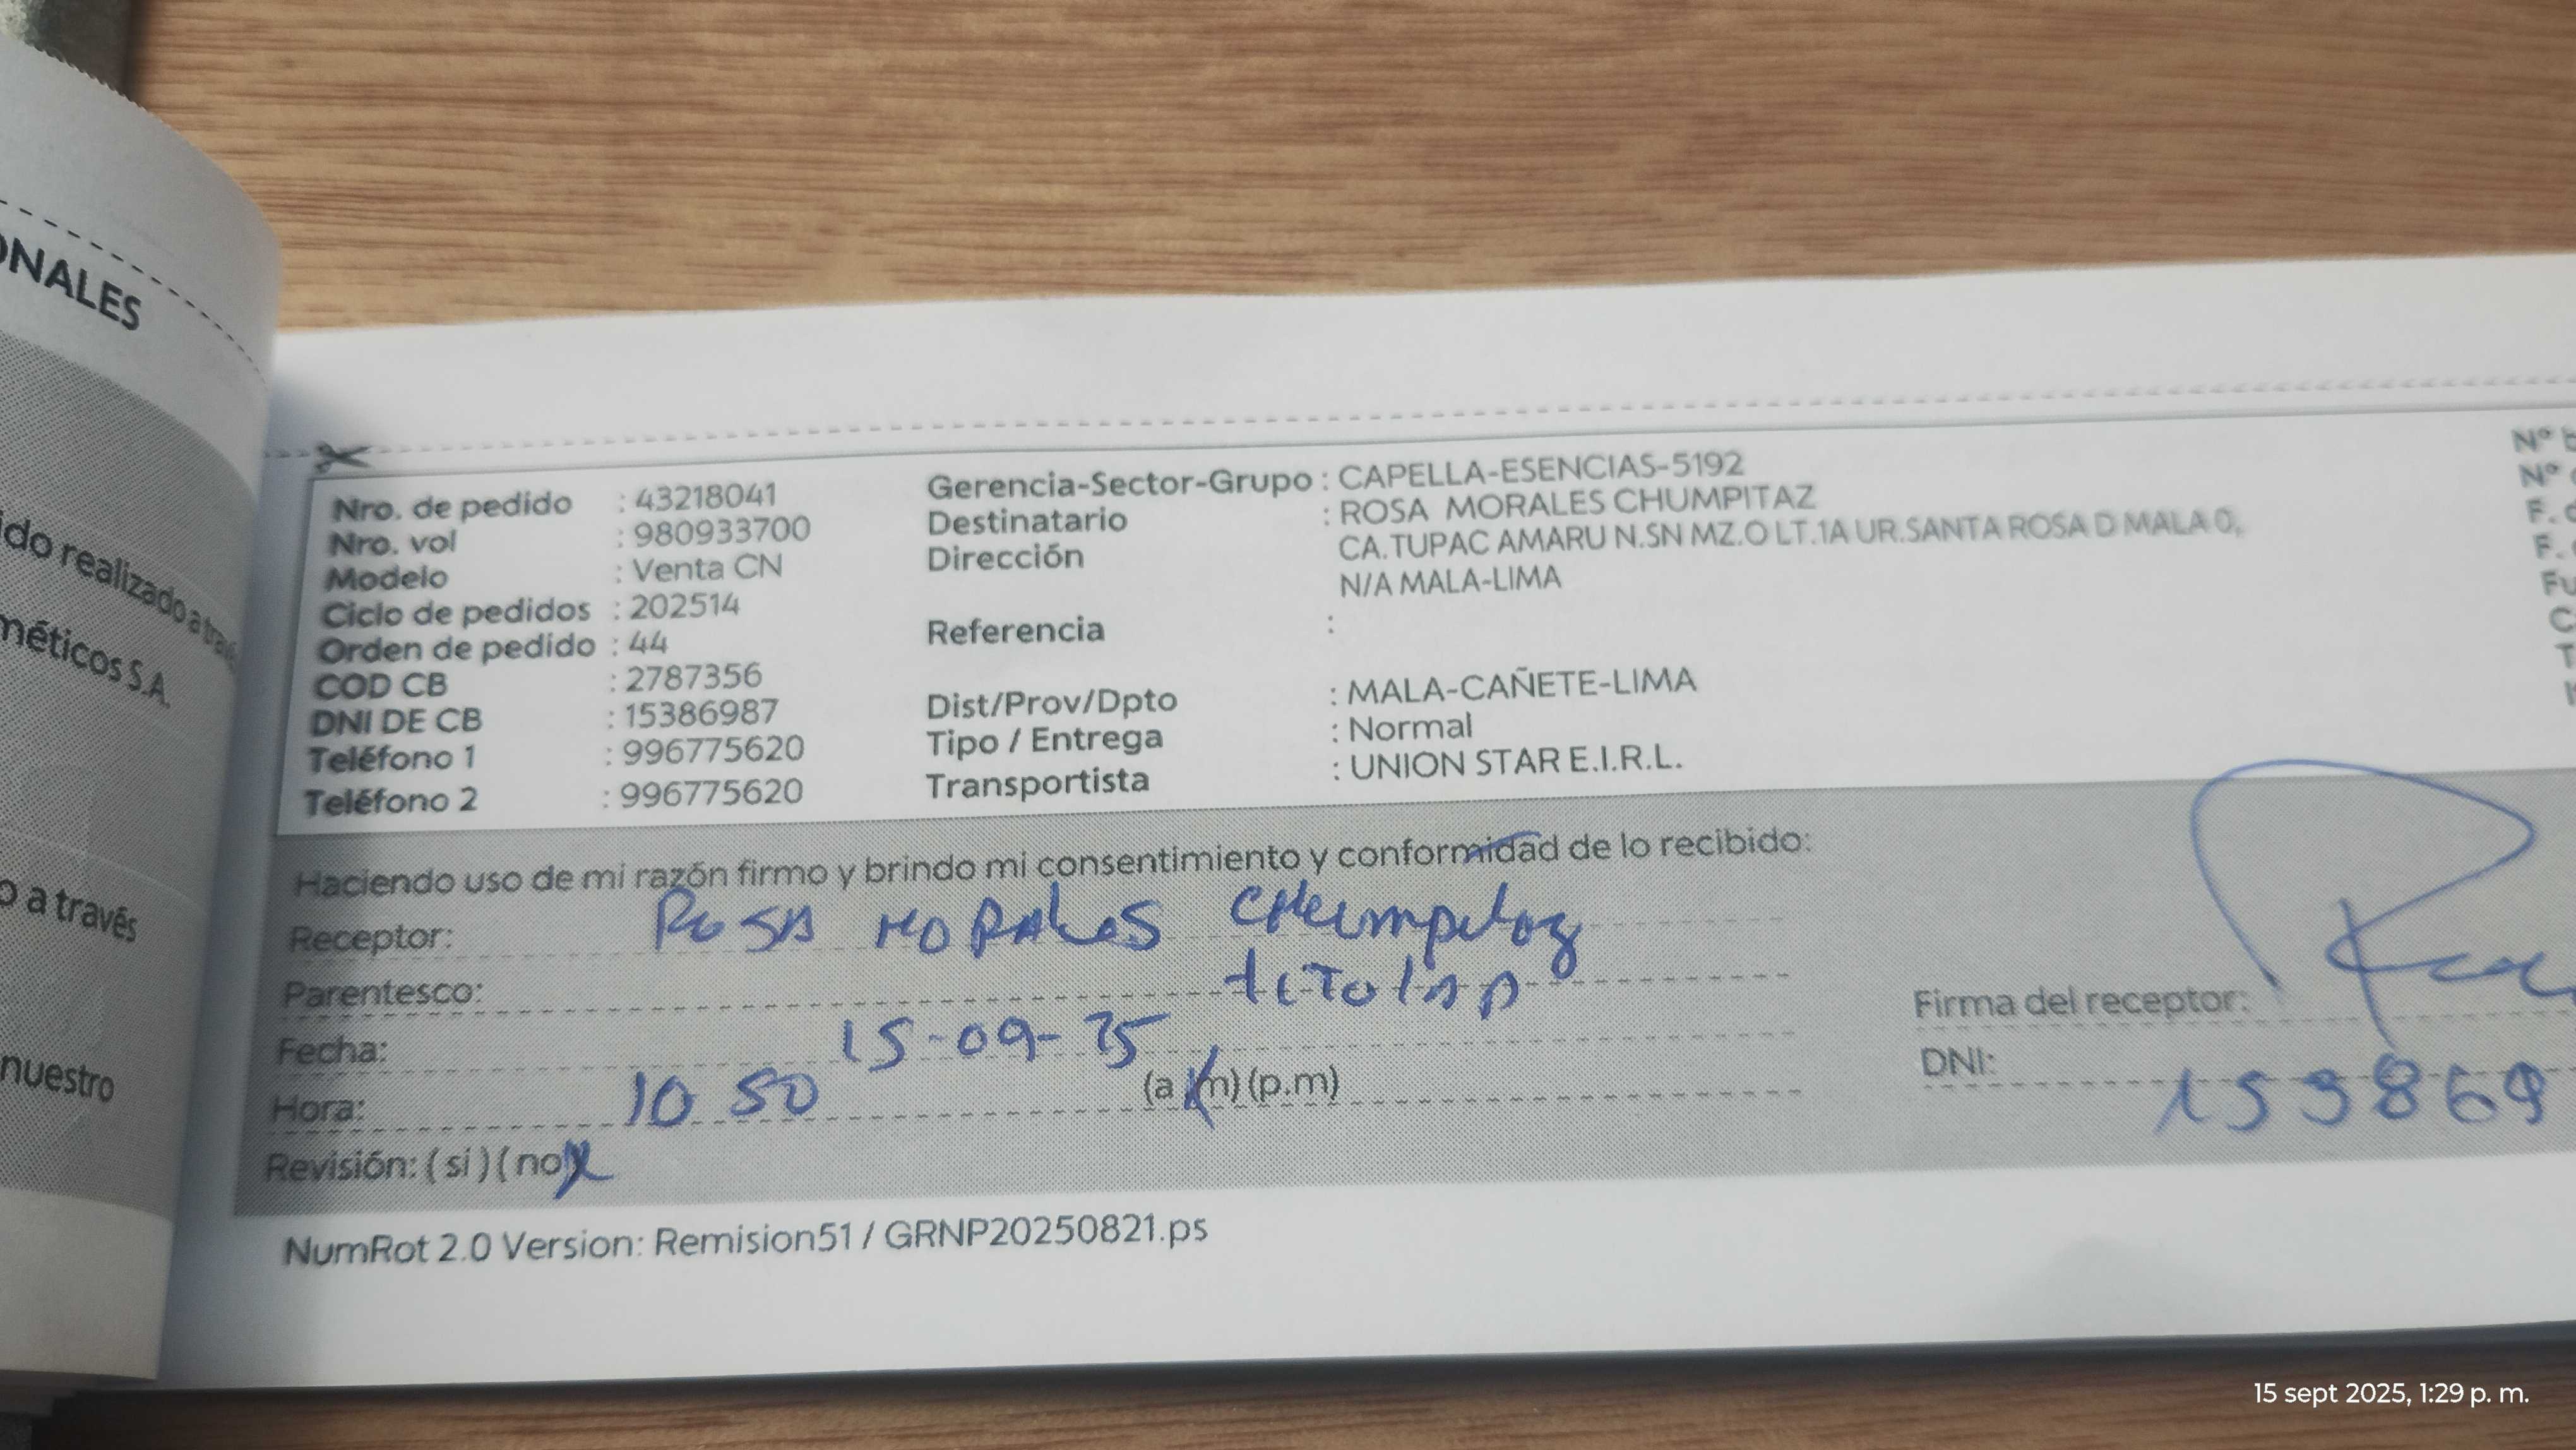 ONALES
ido realizado a trav
méticos S.A.
o a través
nuestro
Nro. de pedido : 43218041
Nro. vol : 980933700
Modelo : Venta CN
Ciclo de pedidos : 202514
Orden de pedido : 44
COD CB : 2787356
DNI DE CB : 15386987
Teléfono 1 : 996775620
Teléfono 2 : 996775620
Gerencia-Sector-Grupo : CAPELLA-ESENCIAS-5192
Destinatario : ROSA MORALES CHUMPITAZ
Dirección CA.TUPAC AMARU N.SN MZ.O LT.1A UR.SANTA ROSA D MALA 0,
N/A MALA-LIMA
Referencia :
Dist/Prov/Dpto : MALA-CAÑETE-LIMA
Tipo / Entrega : Normal
Transportista : UNION STAR E.I.R.L.
Nº
Nº
F.
F.
Fu
Haciendo uso de mi razón firmo y brindo mi consentimiento y conformidad de lo recibido:
Receptor: ROSA MORALES CHumpitaz
Parentesco: titolar
Fecha: 15-09-25
Hora: 10 50 (a.m) (p.m)
Revisión: (si) (no)
Firma del receptor:
DNI: 153869
NumRot 2.0 Version: Remision51 / GRNP20250821.ps
15 sept 2025, 1:29 p. m.